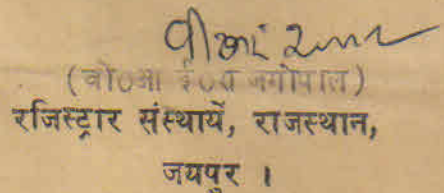 (वी०आई०राजगोपाल)
रजिस्ट्रार संस्थायें, राजस्थान,
जयपुर ।